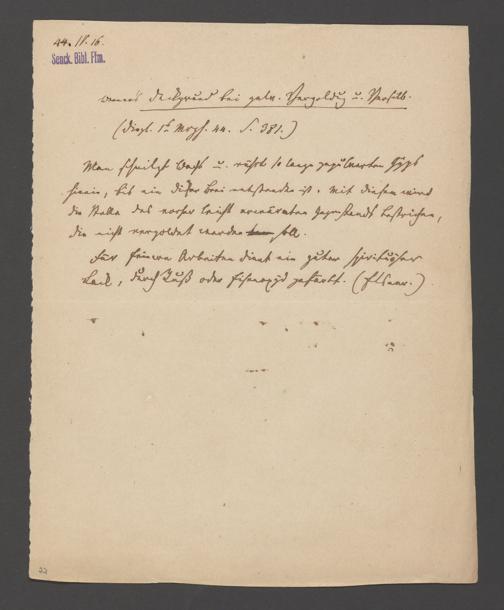 44. 18. 16.
Senck. Bibl. Ffm.
Deckgrund bei galv. Vergoldg u. Versilb.
(Dingl. 1t Mrzh. 44. S. 381.)
Man schmilzt Wachs u. rührt so lange gepulverten Gyps
hinein, bis ein dicker Brei entstanden ist. Mit diesem wird
die Stelle des vorher leicht erwärmten Gegenstands bestrichen,
die nicht vergoldet werden soll.
Für feinere Arbeiten dient ein guter spirituöser
Lack, durch Ruß oder Eisenoxyd gefärbt. (Elsner.)
22